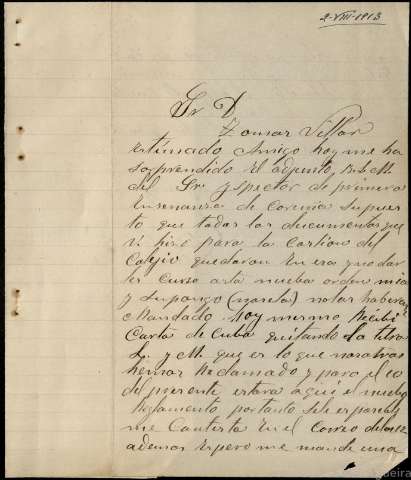 2-VIII-1913
Sr D
Zomar Villar
Estimado Amigo hoy me ha
sosprendido el adjunto, B.L.M.
del Sr yspector de primera
Ensenanza de Corunia supues
to que todas los documentos que
vi hiro para la del
Colejio quedaron En era quedar
les Curso asta nueba orden mia
y supongo (narela) nolas habera
Mandado Hoy mermo Recibi
Carta de Cuba quitando la letra
L. y M. que es lo que nosotros
hemos Reclamado y para el 10
del presente estara aqui el nuebo
Reglamento por tanto Sele espondes
me Contesta En el Correo del 12
ademas Espero me mande una